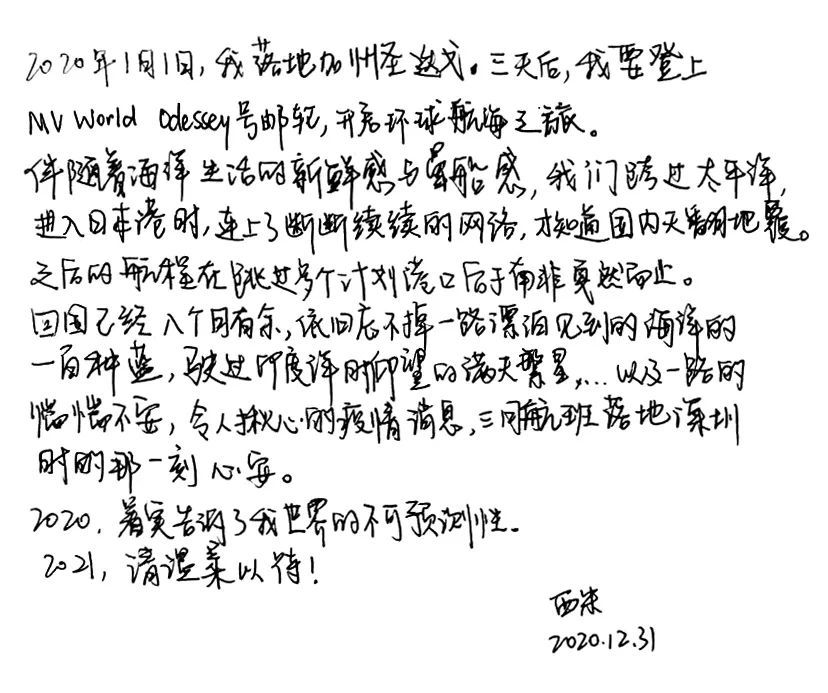 2020年1月1日，我落地加州圣迭戈。三天后，我要登上
MV World Odessey号邮轮，开启环球航海之旅。
伴随着海洋生活的新鲜感与晕船感，我们跨过太平洋，
进入日本港时，连上了断断续续的网络，才知道国内天翻地覆。
之后的航程在跳过多个计划港口后于南非戛然而止。
回国已经八个月有余，依旧忘不掉一路漂泊见到的海洋的
一百种蓝，驶过印度洋时仰望的满天繁星，... 以及一路的
惴惴不安，令人揪心的疫情消息，三同航班落地深圳
时的那一刻心安。
2020，着实告诉了我世界的不可预测性。
2021，请温柔以待！
西米
2020.12.31